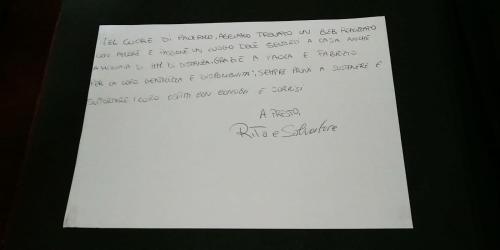 NEL CUORE DI PALERMO, ABBIAMO TROVATO UN B&B REALIZZATO
CON AMORE E PASSIONE, UN LUOGO DOVE SENTIRSI A CASA ANCHE
A MIGLIAIA DI KM DI DISTANZA. GRAZIE A PAOLA E FABRIZIO
PER LA LORO GENTILEZZA E DISPONIBILITÀ, SEMPRE PRONTI A SOSTENERE E
SUPPORTARE I LORO OSPITI CON E SORRISI
A PRESTO,
Rita e Salvatore